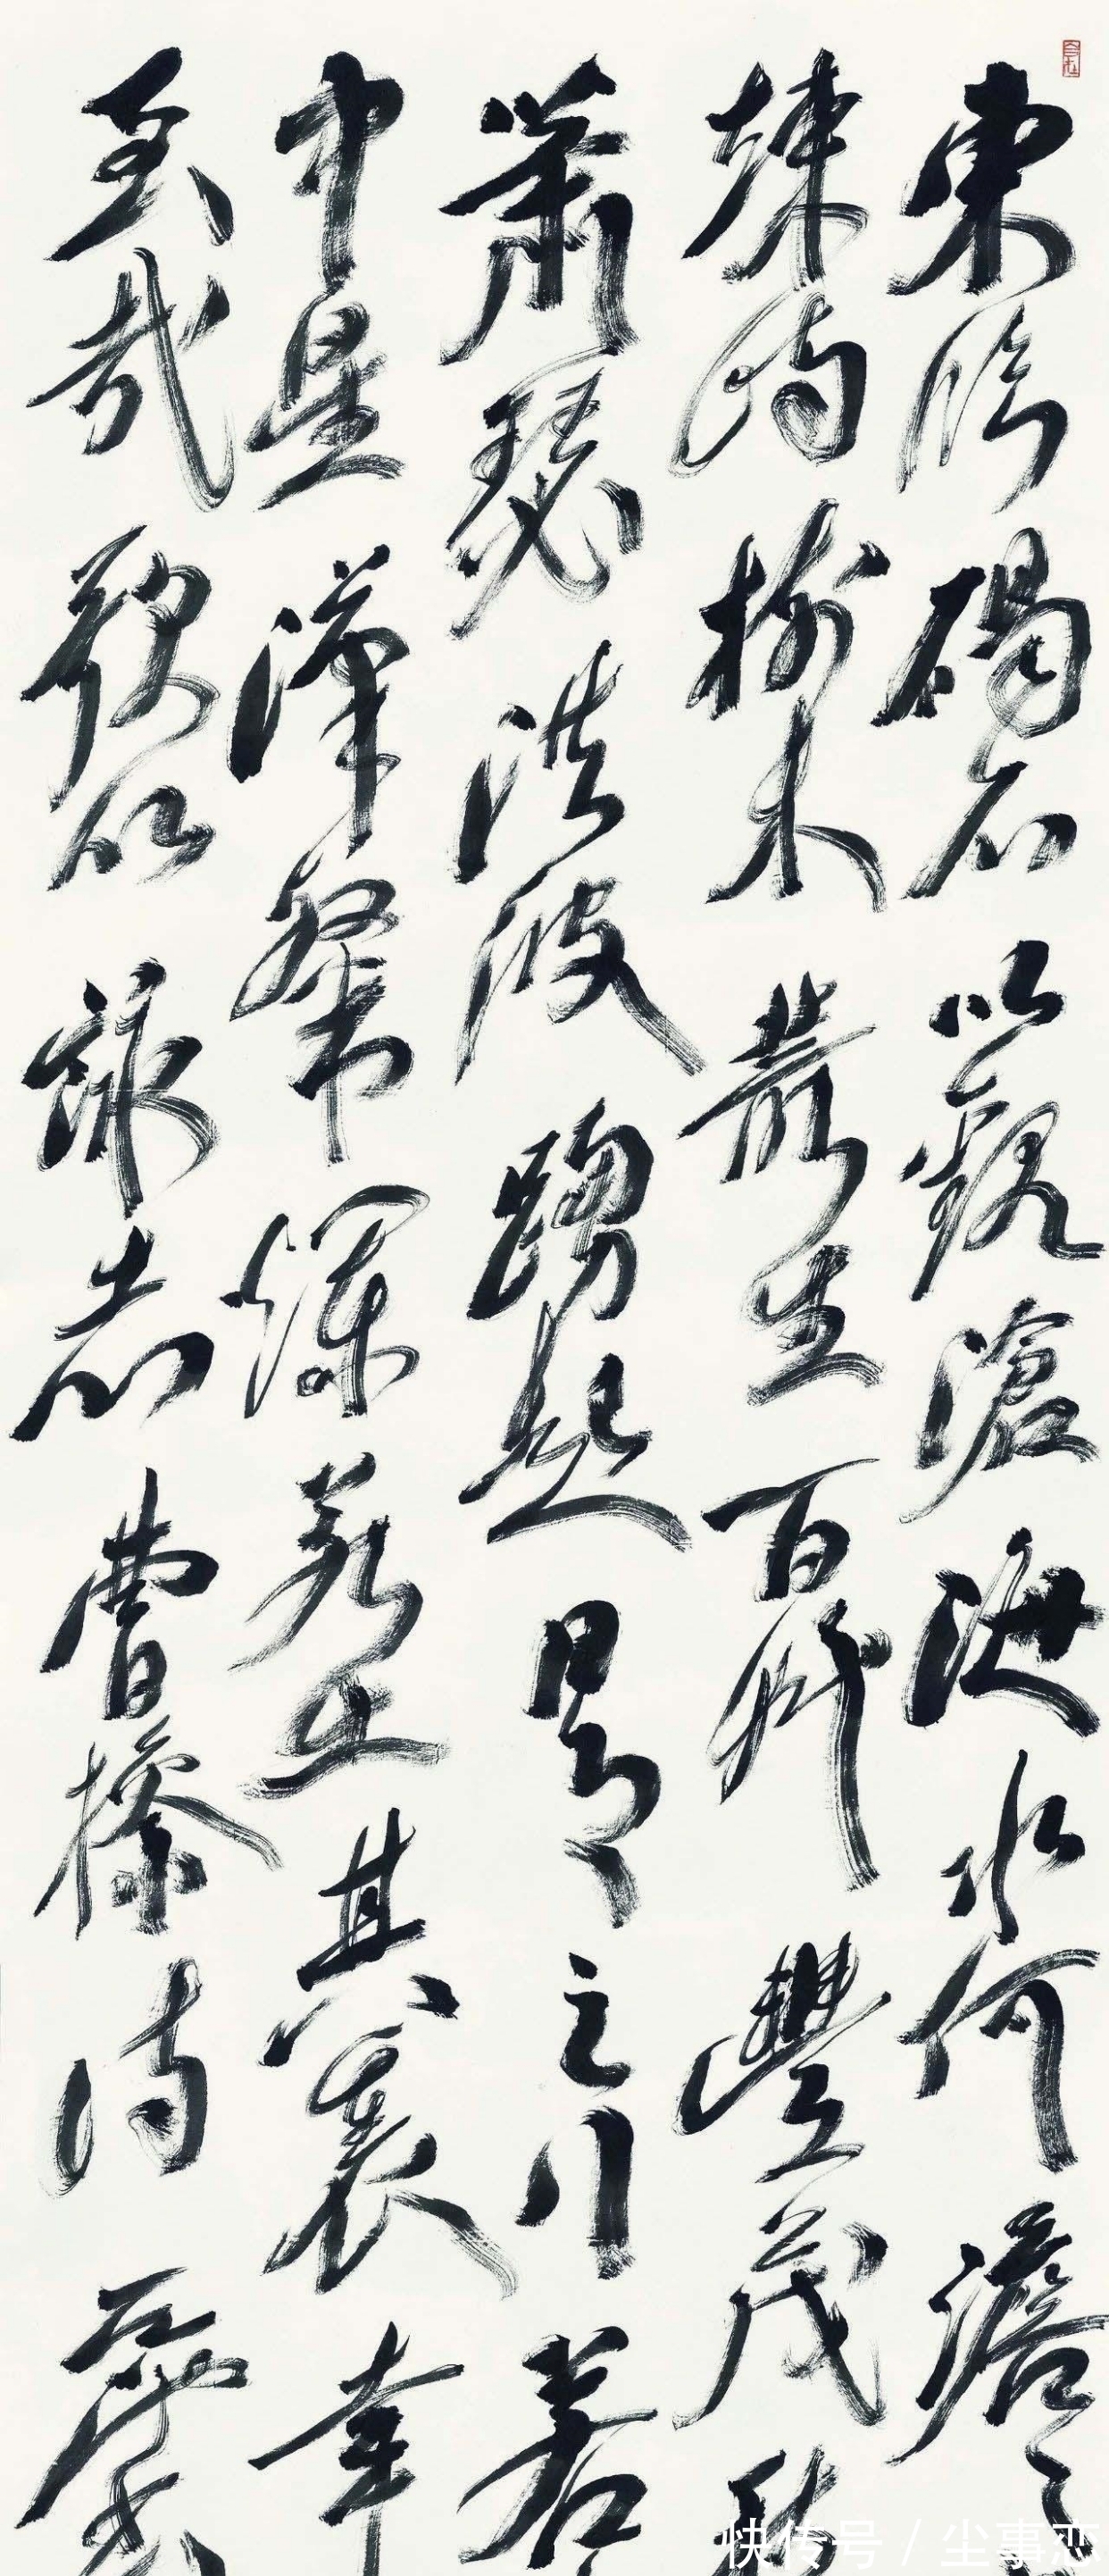 東臨碣石以觀滄海水何澹
竦峙樹木叢生百艸豐茂秋
蕭瑟洪波踴起日月之行若
中星漢粲爛若出其裏幸
至哉歌以詠志曹操詩
快传号 / 尘事恋